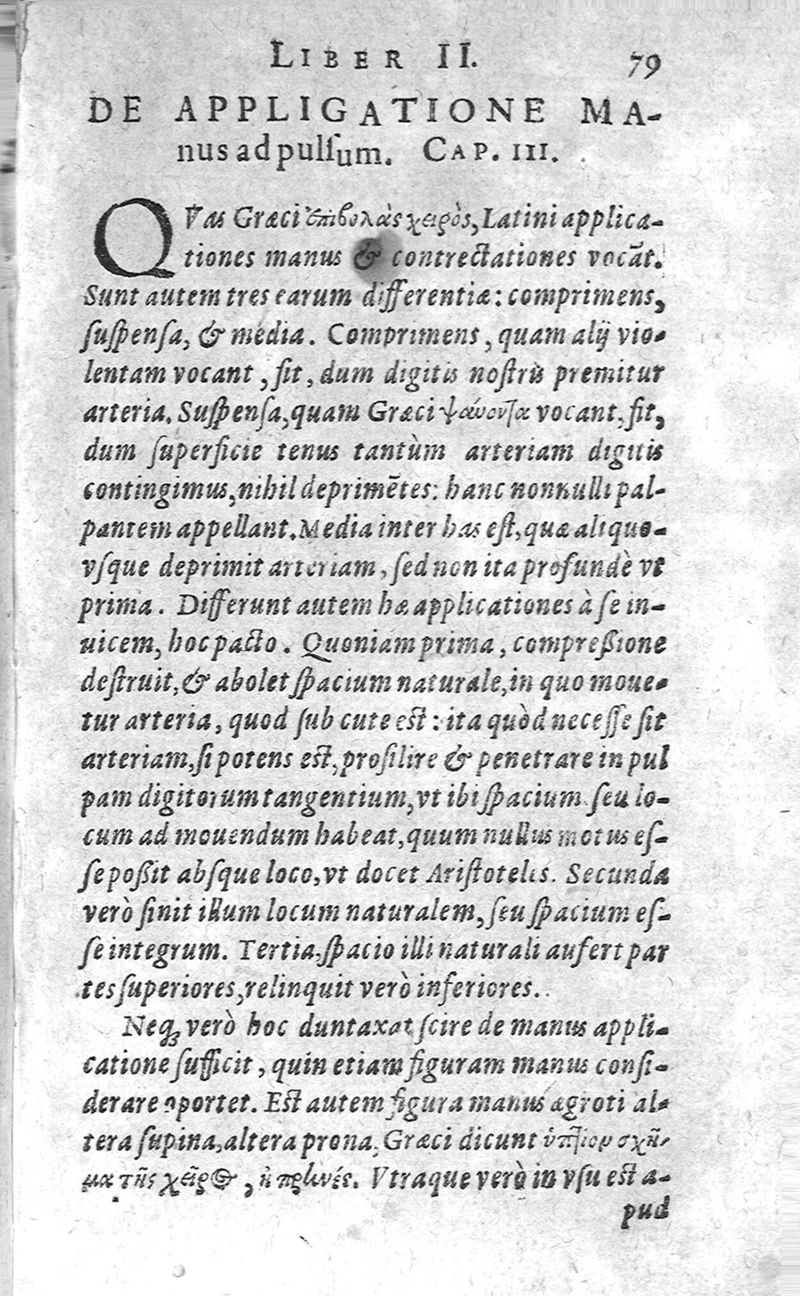 LIBER II. 79
DE APPLIGATIONE MA-
nus ad pulſum. CAP. III.
QVas Græci ἐπιβολὰς χειρὸς, Latini applica-
tiones manus & contrectationes vocāt.
Sunt autem tres earum differentiæ: comprimens,
ſuſpenſa, & media. Comprimens, quam alij vio-
lentam vocant, fit, dum digitis noſtris premitur
arteria. Suſpenſa, quam Græci ψάυοντα vocant, fit,
dum ſuperficie tenus tantùm arteriam digitis
contingimus, nihil deprimẽtes: hanc nonnulli pal-
pantem appellant. Media inter has eſt, quæ aliquo-
vſque deprimit arteriam, ſed non ita profundè vt
prima. Differunt autem hæ applicationes à ſe in-
uicem, hoc pacto. Quoniam prima, compreßione
deſtruit, & abolet ſpacium naturale, in quo moue-
tur arteria, quod ſub cute eſt: ita quòd neceſſe ſit
arteriam, ſi potens eſt, proſilire & penetrare in pul
pam digitorum tangentium, vt ibi ſpacium ſeu lo-
cum ad mouendum habeat, quum nullus motus eſ-
ſe poßit abſque loco, vt docet Ariſtotelis. Secunda
verò ſinit illum locum naturalem, ſeu ſpacium eſ-
ſe integrum. Tertia, ſpacio illi naturali aufert par
tes ſuperiores, relinquit verò inferiores.
Neq; verò hoc duntaxat ſcire de manus appli-
catione ſufficit, quin etiam figuram manus conſi-
derare oportet. Eſt autem figura manus ægroti al-
tera ſupina, altera prona, Græci dicunt ὑπ͂ιον σχῆ-
μα τῆς χεῖρος, ἢ πρηνές. Vtraque verò in vſu eſt a-
pud